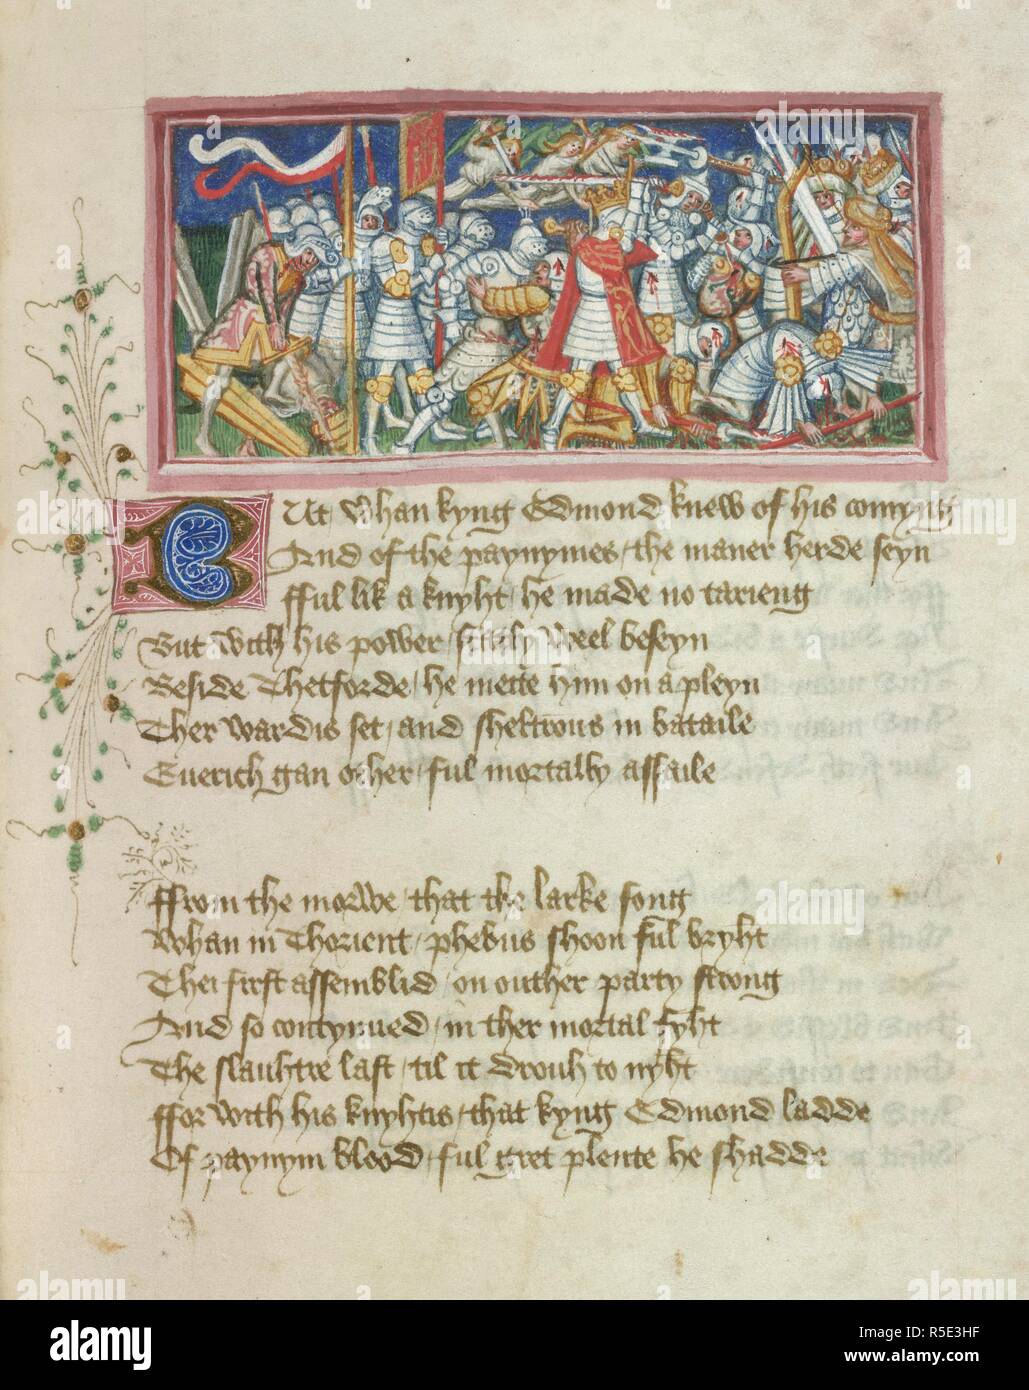 But whan kyng Edmond knew of his comyng
And of the paynymes / the maner herde seyn
fful lik a knyht / he made no tarieng
But with his power / statly weel beseyn
Beside Thetforde / he mette hym on a pleyn
Ther wardis set / and sheltrous in bataile
Euerich gan other / ful mortally assaile
ffrom the morwe / that the larke song
Whan in Thorient / phebus shoon ful bryht
Thei first assemblid / on outher party strong
And so contynued / in ther mortal fyht
The slauhtre last / til it drouh to nyht
ffor with his knyhtis / that kyng Edmond ladde
Of paynym blood / ful gret plente he shadde
alamy
Image ID: R5E3HF
www.alamy.com